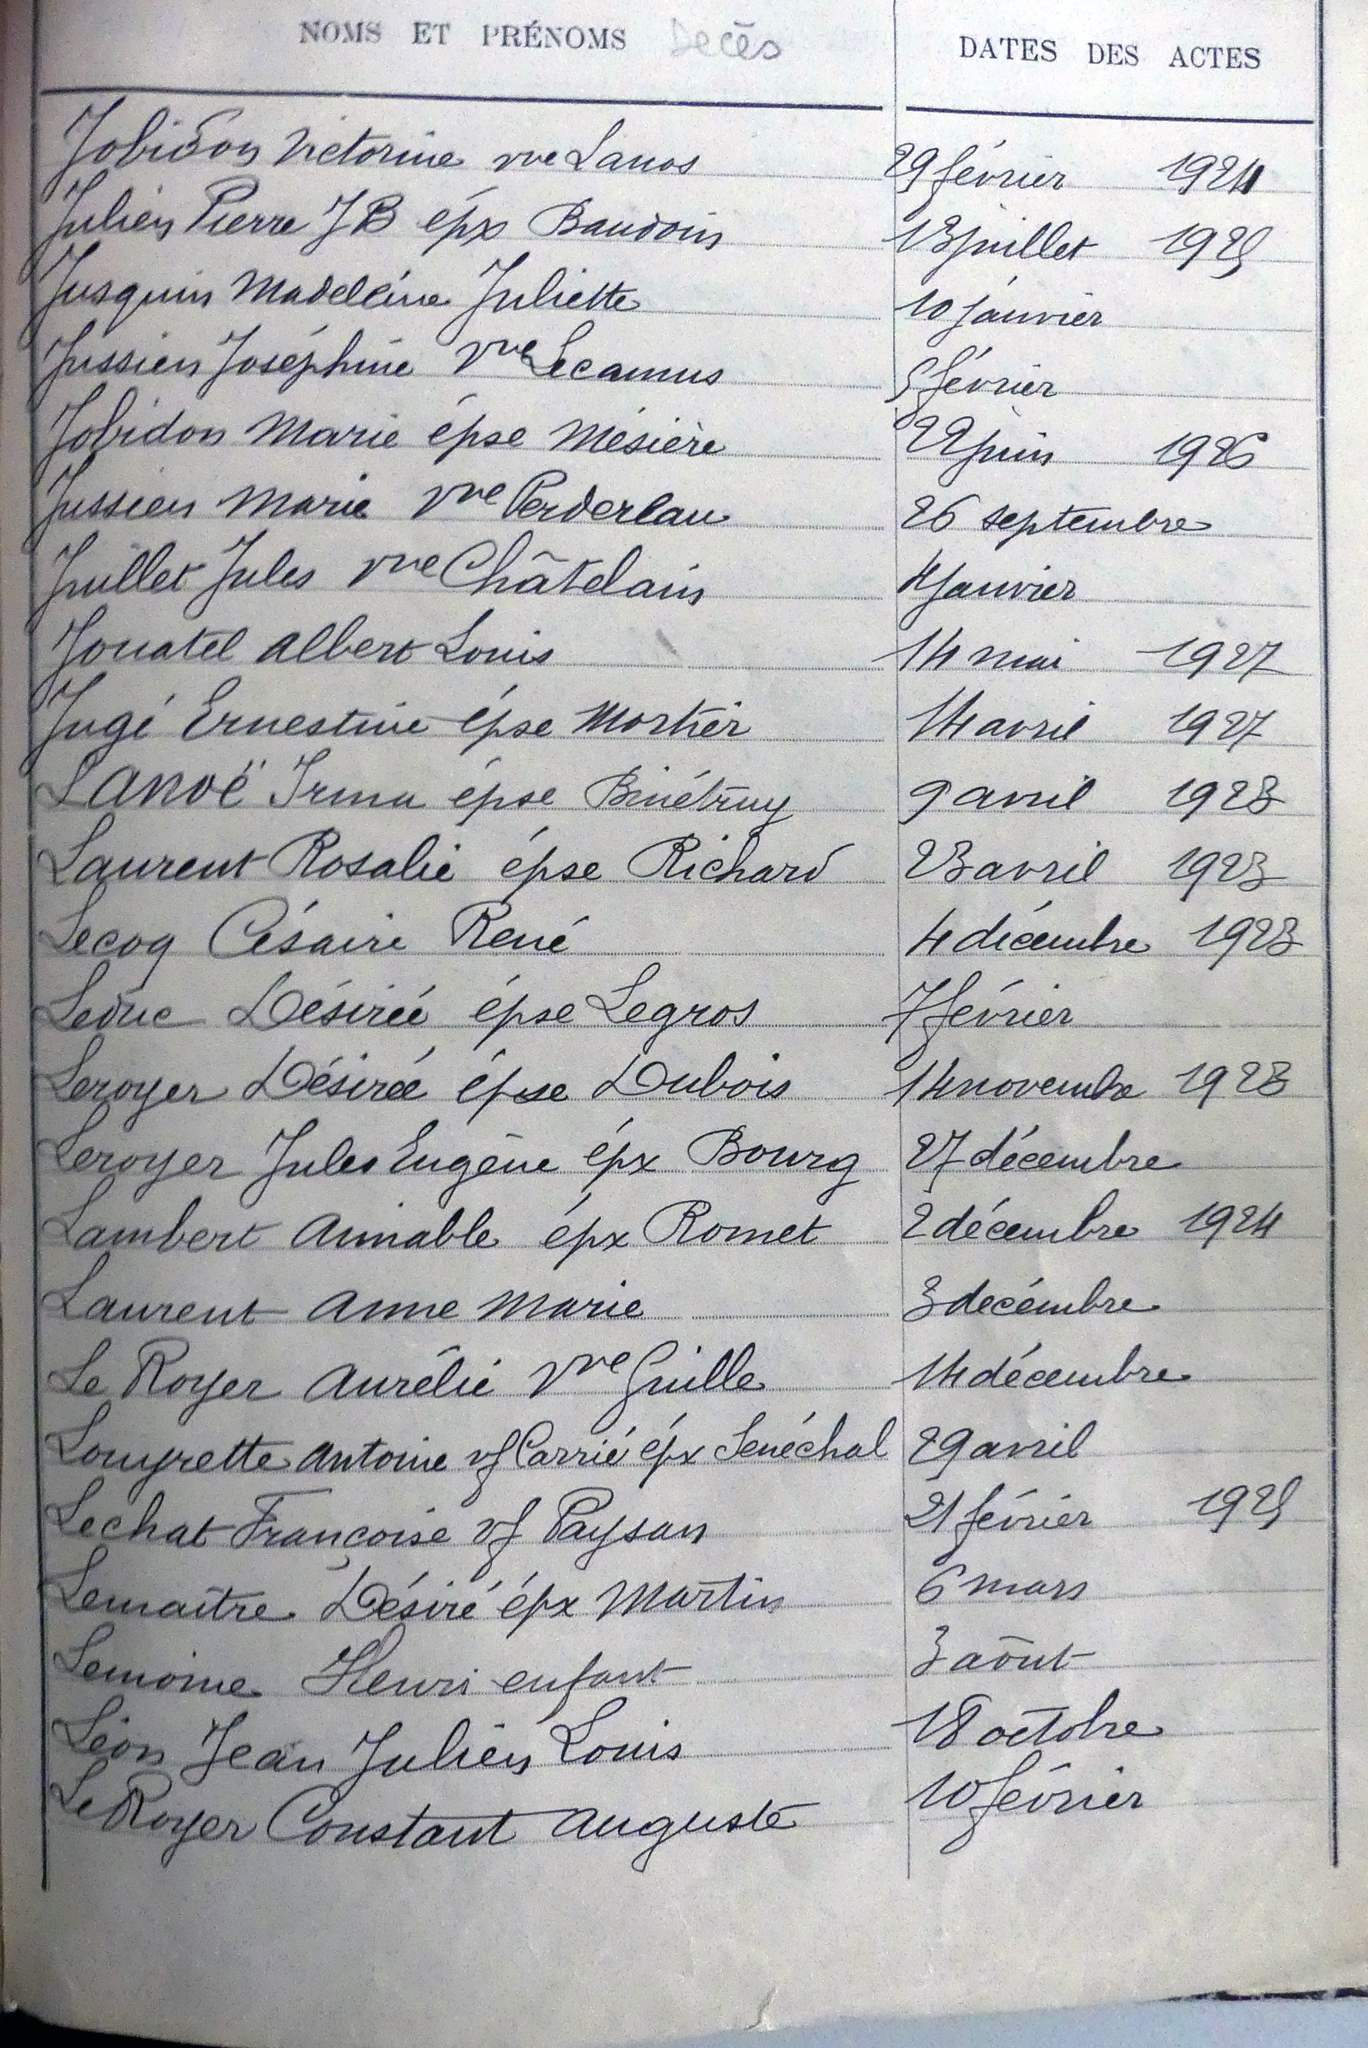 NOMS ET PRÉNOMS Decēs DATES DES ACTES
Jobidon Victorine vve Lanos 29 février 1924
Julien Pierre JB épx Baudoin 13 juillet 1925
Jusquin Madeleine Juliette 10 janvier
Jussien Joséphine Vve Lecamus 5 février
Jobidon Marie épse Mésière 22 juin 1926
Jussien Marie Vve Perderlau 26 septembre
Juillet Jules vve Châtelain 4 janvier
Jouatel Albert Louis 14 mai 1927
Jugé Ernestine épse Mortier 14 avril 1927
LANOË Irma épse Binétruy 9 avril 1923
Laurent Rosalie épse Richard 23 avril 1923
Lecoq Césaire René 4 décembre 1923
Leduc Désirée épse Legros 7 février
Leroyer Désirée épse Dubois 14 novembre 1923
Leroyer Jules Eugène épx Bourg 27 décembre
Lambert Aimable épx Romet 2 décembre 1924
Laurent Anne Marie 3 décembre
Le Royer Aurélie Vve Guille 14 décembre
Louyrette Antoine vf Carrié épx Senéchal 29 avril
Lechat Françoise vf Paysan 21 février 1925
Lemaître Désiré épx Martin 6 mars
Lemoine Henri enfant 3 août
Léon Jean Julien Louis 18 octobre
Le Royer Constant Auguste 10 février